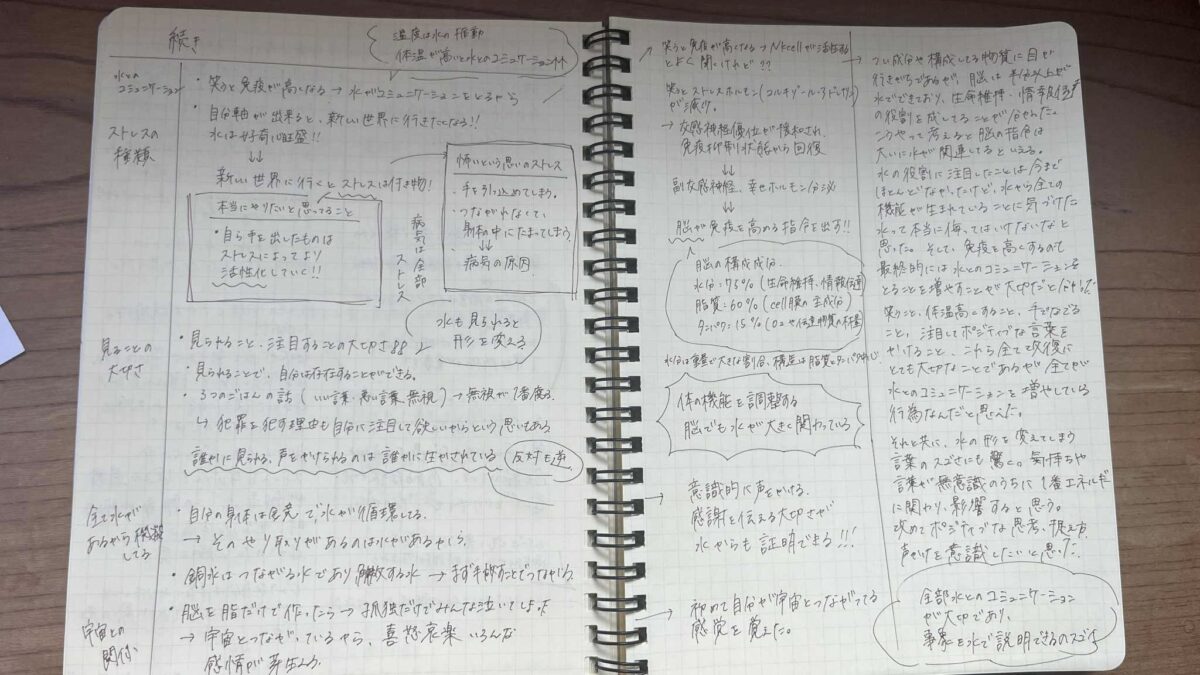 続き
温度は水の振動
体温が高いと水とのコミュニケーション↑↑
水との
コミュニケーション
・笑うと免疫が高くなる → 水がコミュニケーションをとるから
・自分軸が出来ると、新しい世界に行きたくなる!!
水は好奇心旺盛!!
↓↓
新しい世界に行くとストレスは付き物!
ストレスの
種類
本当にやりたいと思ってること
・自ら手を出したものは
ストレスによってより
活性化していく!!
病気は全部
ストレス
怖いという思いのストレス
・手を引っ込めてしまう。
・つながれなくて、
身体の中にたまってしまう
↓↓
病気の原因
見ることの
大切さ
・見られること、注目することの大切さ
水も見られると
形を変える
・見られることで、自分は存在することができる。
・3つのごはんの話(いい言葉・悪い言葉、無視) → 無視が1番腐る。
↳ 犯罪を犯す理由も自分に注目して欲しいからという思いもある
誰かに見られる、声をかけられるのは誰かに生かされている
反対も逆
全て水が
あるから機能
してる
・自分の身体は で、水が循環してる。
→ そのやり取りがあるのは水があるから。
・銅水はつながる水であり解放する水 → まず手放すことでつながる
宇宙との
関係
・脳を脂だけで作ったら → 孤独だけでみんな泣いてしまった
→ 宇宙とつながっているから、喜怒哀楽いろんな
感情が芽生える。
笑うと免疫が高くなる → NKcellが活性する
とよく聞くけれど??
笑うとストレスホルモン(コルチゾール・アドレナリン)
が減少。
→ 交感神経優位が緩和され、
免疫抑制状態から回復
副交感神経、幸せホルモン分泌
↓↓
脳が免疫を高める指令を出す!!
脳の構成成分
水分:75%(生命維持、情報伝達
脂質:60%(cell膜の主成分
タンパク:15%(ロや伝達物質の材料
水分は重量で大きな割合、構造は脂質とタンパク中心
体の機能を調整する
脳でも水が大きく関わっている
→ 意識的に声をかける。
感謝を伝える大切さが
水からも証明できる!!!
→ 初めて自分が宇宙とつながってる
感覚を覚えた。
→ つい成分や構成してる物質に目が
行きがちであるが、脳は半分以上が
水でできており、生命維持、情報伝達
の役割を成してることが分かった。
こうやって考えると脳の指令は
大いに水が関連してるといえる。
水の役割に注目したことは今まで
ほとんどなかったけど、水から全ての
機能が生まれていることに気づけた
水って本当に侮ってはいけないなと
思った。そして、免疫を高くするので
最終的には水とのコミュニケーションを
とることを増やすことが大切だと分かった
笑うこと、体温高くすること、手でなでる
こと、注目してポジティブな言葉を
かけること、これら全て改めて
とても大切なことであるが全てが
水とのコミュニケーションを増やしている
行為なんだと思えた。
それと共に、水の形を変えてしまう
言葉のスゴさにも驚く。気持ちや
言葉が無意識のうちに1番エネルギー
に関わり、影響すると思う。
改めてポジティブな思考、捉え方、
声かけを意識したいと思った。
全部水とのコミュニケーション
が大切であり、
事象を水で説明できるのスゴイ